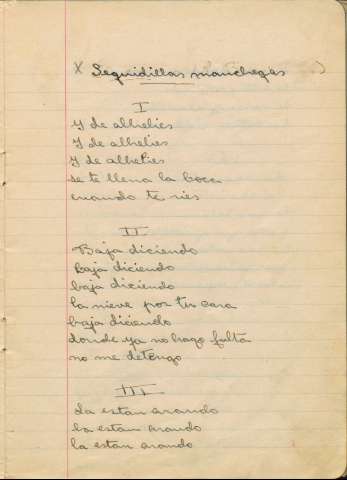 X Seguidillas manchegas
I
Y de alhelies
Y de alhelies
Y de alhelies
se te llena la boca
cuando te ries
II
Baja diciendo
Baja diciendo
baja diciendo
la nieve por tu cara
baja diciendo
donde ya no hago falta
no me detengo
III
La estan arando
la estan arando
la estan arando